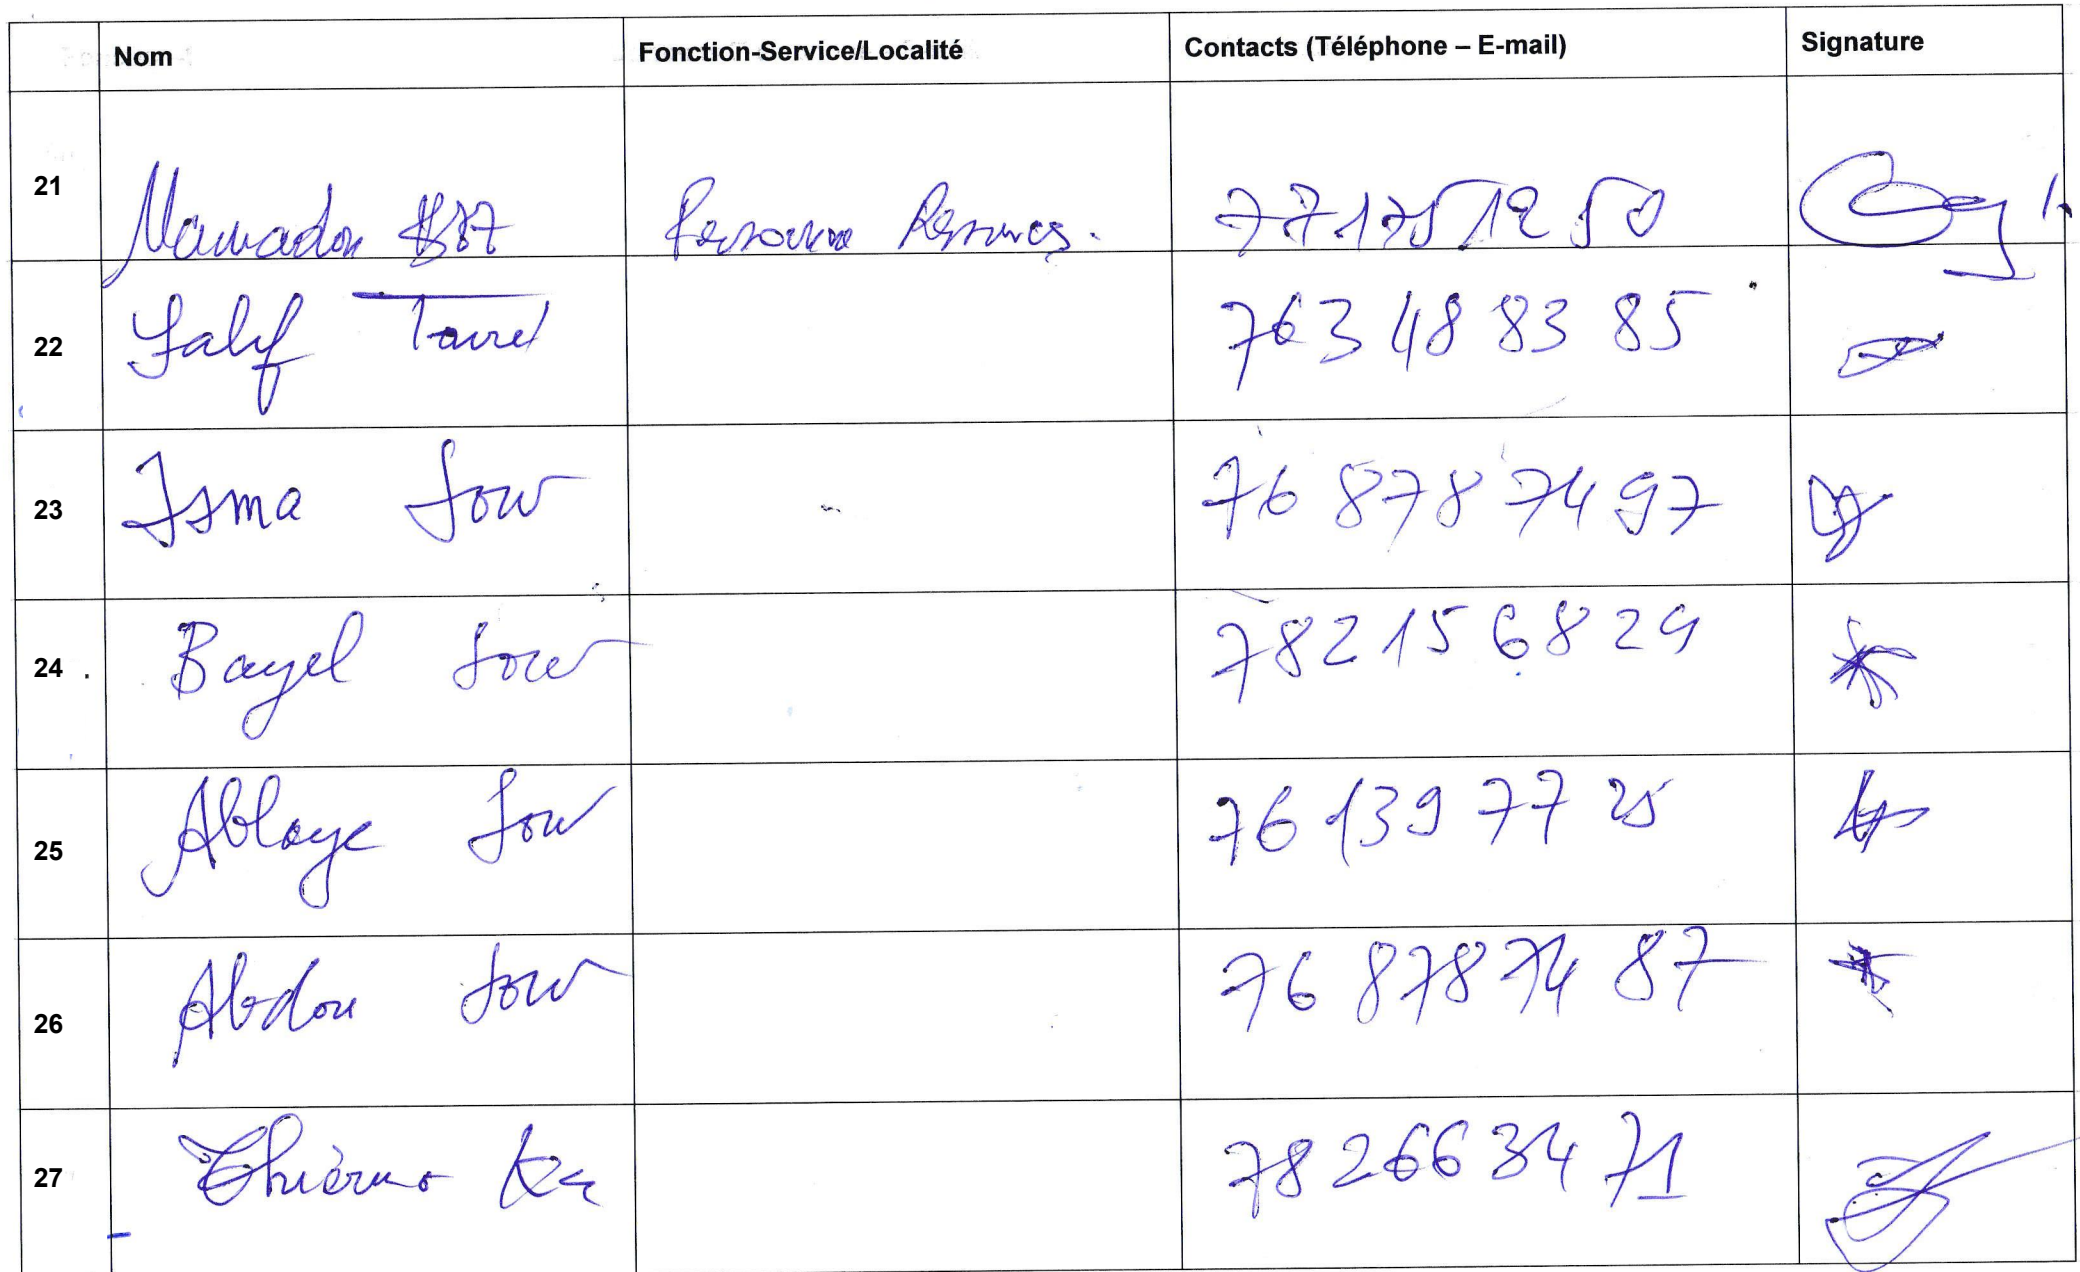 Nom Fonction-Service/Localité Contacts (Téléphone – E-mail) Signature
21 Mamadou Personne Ressources. 77 175 12 50
22 Salif Touré 76 348 83 85
23 Isma Sow 76 878 74 97
24 Bayel Sow 78 215 68 29
25 Ablaye Sow 76 139 77 25
26 Abdou Sow 76 878 74 87
27 Thierno Ka 78 266 34 71